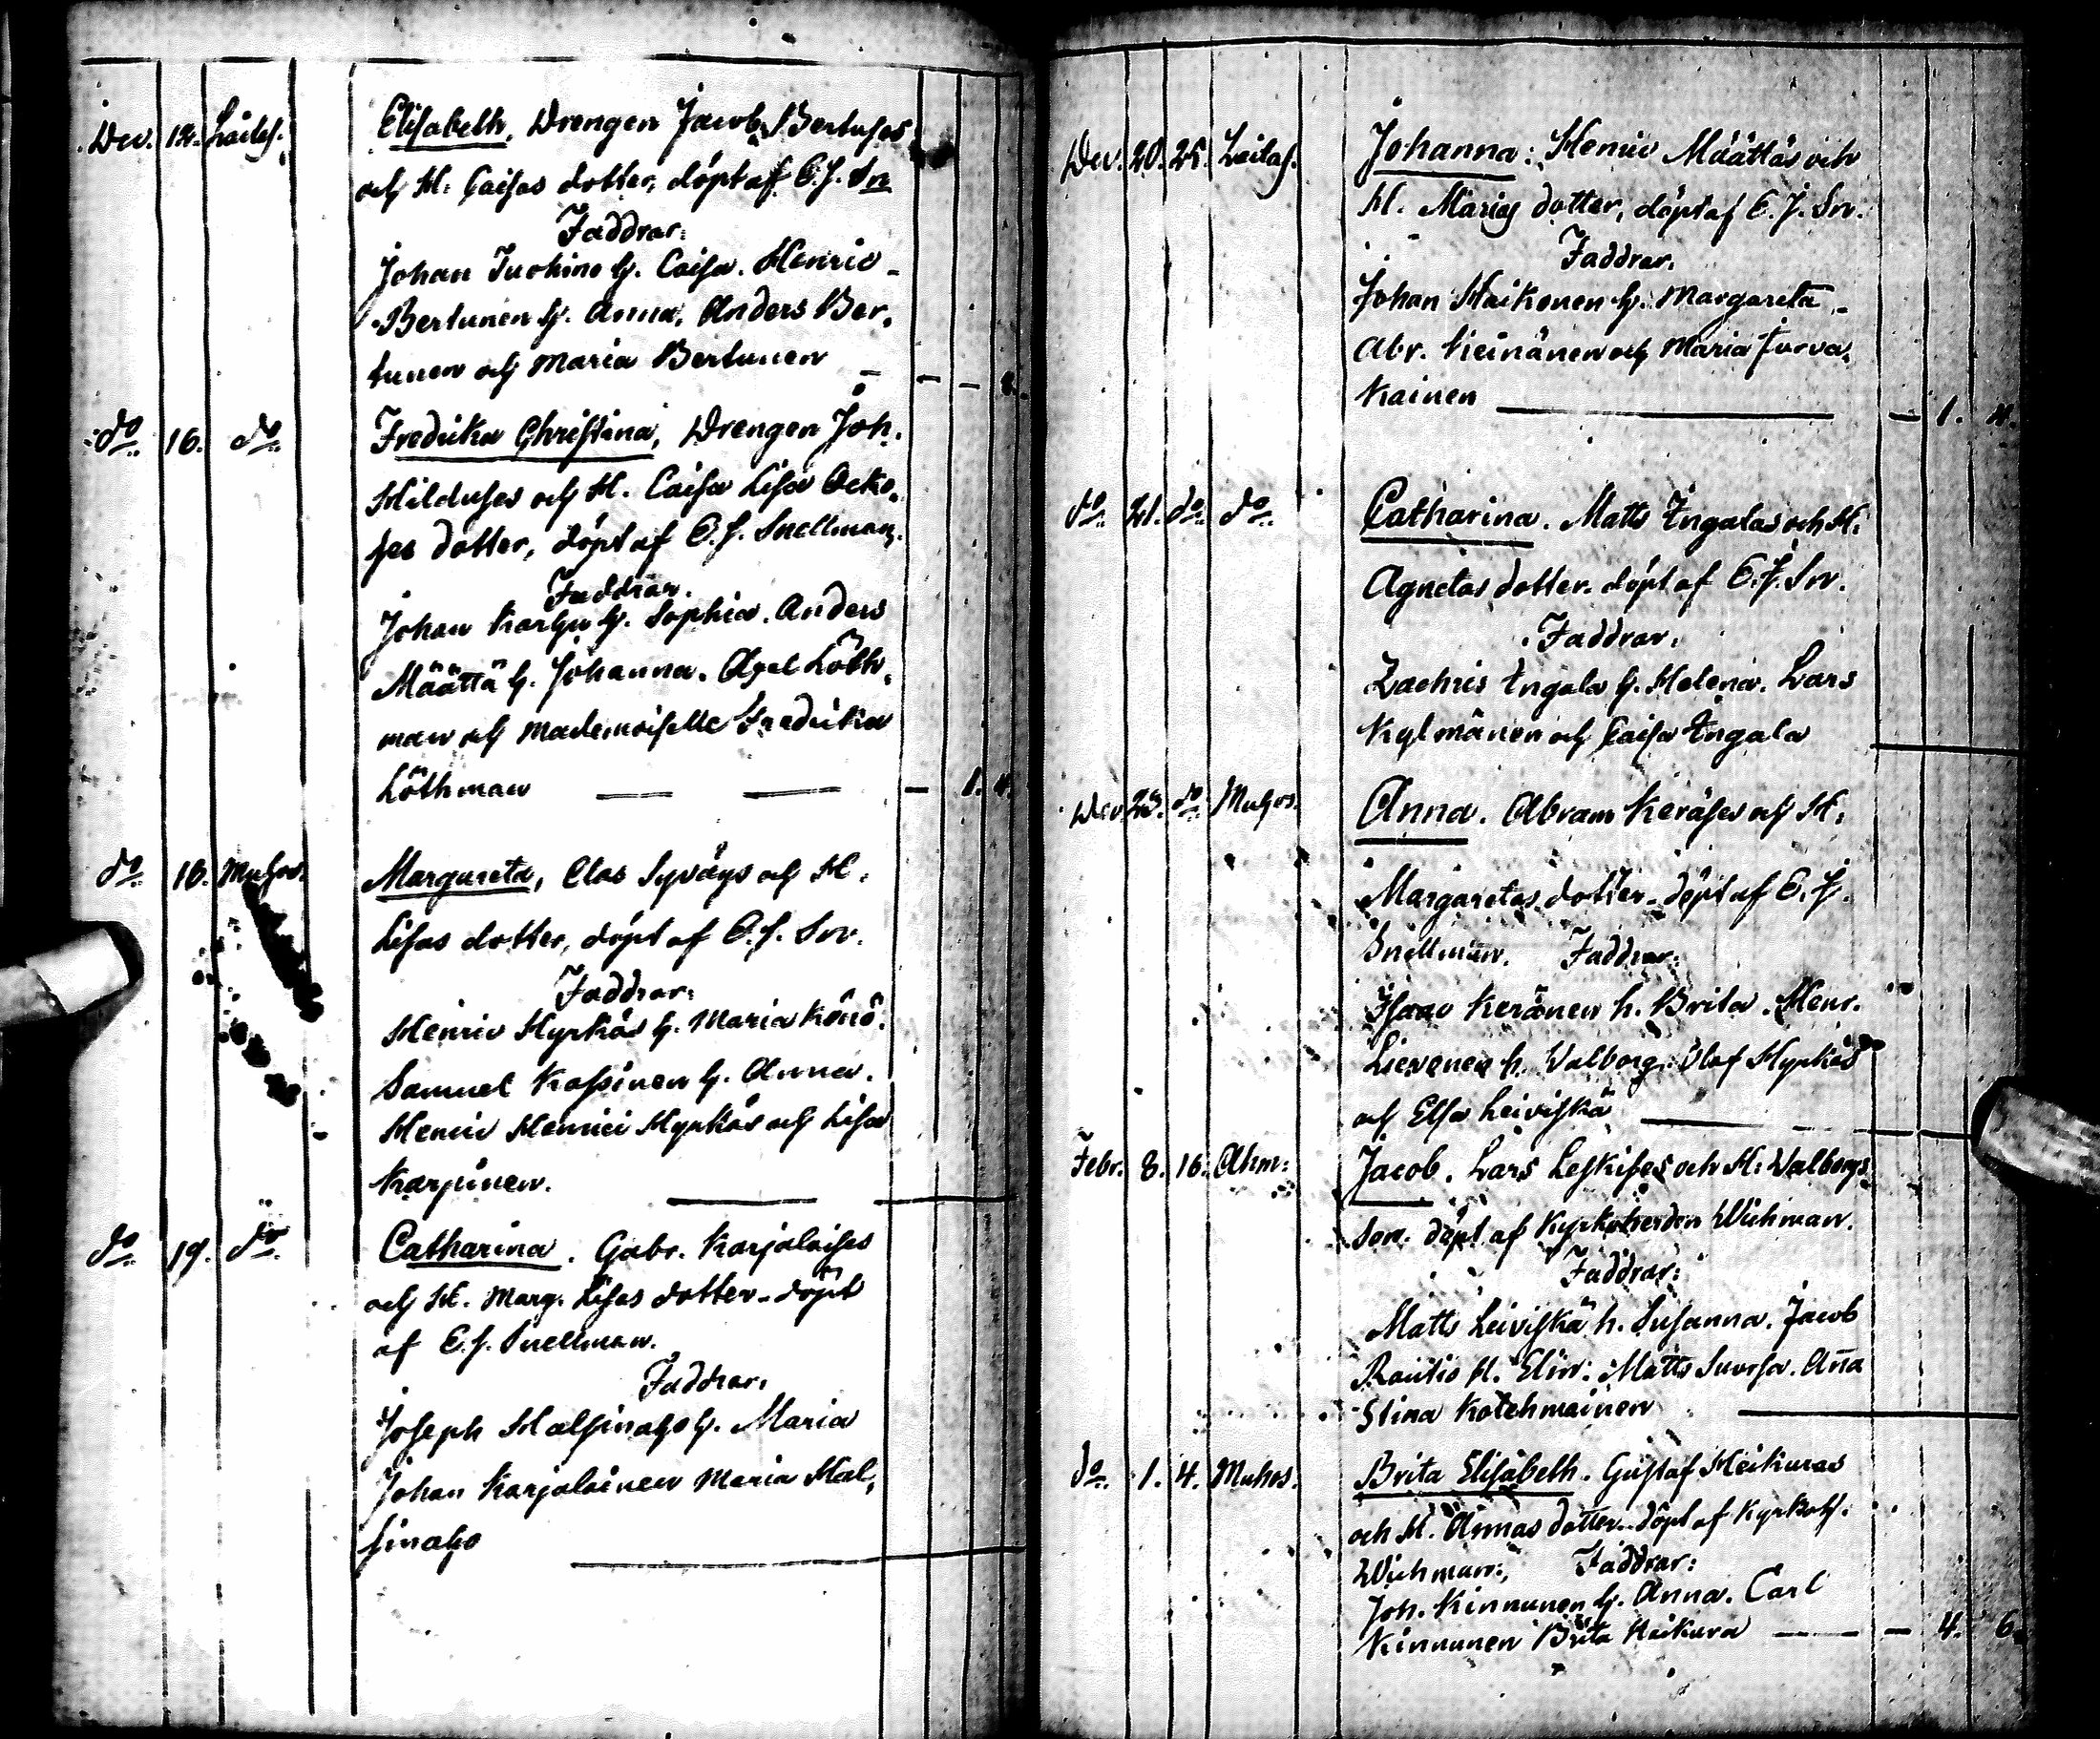 Dec. 14. Laitas. Elisabeth, Drengen Jacob Bertuses
och H. Caisas dotter, döpt af E. J. Sn
Faddrar:
Johan Tuohino h. Caisa. Henric
Bertunen h. Anna. Anders Ber-
tunen och Maria Bertunen — — —
do 16. do Fredrika Christina, Drengen Joh.
Hilduses och H. Caisa Lisa Ocko-
ses dotter, döpt af E. J. Snellman.
Faddrar.
Johan Karhu h. Sophia. Anders
Määttä h. Johanna. Axel Löth-
man och Mademoiselle Fredrika
Löthman — — — 1. 4.
do 16. Muhos. Margareta, Clas Syväys och H.
Lisas dotter, döpt af E. J. Sn.
Faddrar:
Henric Hyrkäs h. Maria Könö.
Samuel Kassinen h. Anna.
Henric Henrici Hyrkäs och Lisa
Karpinen.
do 19. do Catharina. Gabr. Karjalaises
och H. Marg. Lisas dotter. döpt
af E. J. Snellman.
Faddrar.
Joseph Halsinaho h. Maria
Johan Karjalainen Maria Hal-
sinaho
Dec. 20. 25. Laitas. Johanna: Henric Määttäs och
H. Marias dotter, döpt af E. J. Sn.
Faddrar.
Johan Haikonen h. Margareta
Abr. Keinänen och Maria Jurva-
kainen — — 1. 4.
do 21. do do Catharina. Matts Ingalas och H.
Agnetas dotter. döpt af E. J. Sn.
Faddrar.
Zachris Ingala h. Helena. Lars
Kylmänen och Caisa Ingala
Dec. 23. do Muhos. Anna. Abram Keräses och H.
Margaretas dotter. döpt af E. J.
Snellman. Faddrar:
Isaac Keränen h. Brita. Henr.
h. Valborg. Olof Hyrkäs
och Elsa Leiviskä
Febr. 8. 16. Ahm: Jacob. Lars Leskises och H: Walborgs
son. döpt af Kyrkoherden Wichman.
Faddrar:
Matts Leiviskä h. Susanna. Jacob
Rautio H. Elin: Matts Suorsa. Aña
Stina Kotehmainen
do 1. 4. Muhos. Brita Elisabeth. Gustaf Heikuras
och H. Annas dotter. döpt af Kyrkoh.
Wichman: Faddrar:
Joh. Kinnunen h. Anna. Carl
Kinnunen Brita Heikura — — 4. 6.